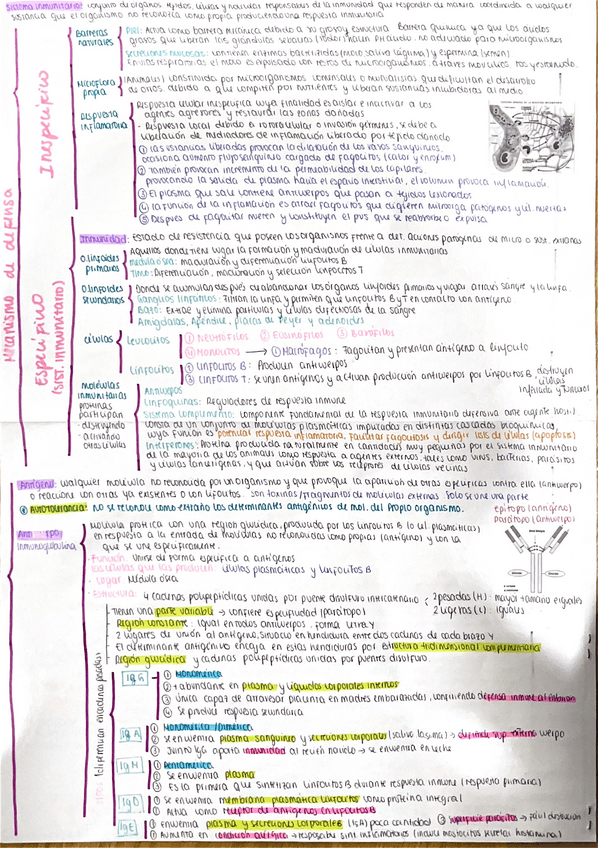 Sistema inmunitario: conjunto de órganos, tejidos, células y moléculas responsables de la inmunidad que responden de manera coordinada a cualquier
sustancia que el organismo no reconozca como propia produciendo una respuesta inmunitaria
Mecanismo de defensa
Inespecífico
Barreras naturales
PIEL: Actúa como barrera mecánica debido a su grosor y estructura. Barrera química ya que los ácidos
grasos que liberan las glándulas sebáceas hacen pH ácido: no adecuado para microorganismos
Secreciones mucosas: contienen enzimas bactericidas (moco, saliva, lágrima) y espermina (semen)
En vías respiratorias el moco es expulsado con restos de microorganismos, a través mov. cilios, tos y estornudo.
Microflora propia
(Animales) constituida por microorganismos comensales o mutualistas que dificultan el desarrollo
de otros debido a que compiten por nutrientes y liberan sustancias inhibidoras al medio
Respuesta inflamatoria
Respuesta celular inespecífica cuya finalidad es aislar e inactivar a los
agentes agresores y restaurar las zonas dañadas
- Respuesta local debido a rotura celular o invasión gérmenes, se debe a
liberación de mediadores de inflamación liberados por tejido dañado
① Las sustancias liberadas provocan la dilatación de los vasos sanguíneos,
ocasiona aumento flujo sanguíneo cargado de fagocitos (calor y enrojecim)
② También provocan incremento de la permeabilidad de los capilares
provocando la salida de plasma hacia el espacio intersticial, el volumen provoca inflamación.
③ El plasma que sale contiene anticuerpos que pasan a tejidos lesionados
④ La función de la inflamación es atraer fagocitos que digieren microorg. patógenos y cél. muertas
⑤ Después de fagocitar mueren y constituyen el pus que se reabsorbe o expulsa
Específico
(SIST. INMUNITARIO)
Inmunidad: Estado de resistencia que poseen los organismos frente a det. acciones patógenas de micro o sus. extrañas
O. linfoides primarios
Aquellos donde tiene lugar la formación y maduración de células inmunitarias
Médula ósea: maduración y diferenciación linfocitos B
Timo: Diferenciación, maduración y selección linfocitos T
O. linfoides secundarios
Donde se acumulan después de abandonar los órganos linfoides primarios y viajar a través sangre y la linfa.
Ganglios linfáticos: Filtran la linfa y permiten que linfocitos B y T entren en contacto con antígeno
Bazo: Extrae y elimina partículas y células defectuosas de la sangre
Amígdalas, Apéndice, placas de Peyer y adenoides
Células
Leucocitos
① Neutrófilos ② Eosinófilos ③ Basófilos
④ Monocitos → ① Macrófagos: Fagocitan y presentan antígeno a linfocito
Linfocitos
① Linfocitos B: Producen anticuerpos
② Linfocitos T: se unen antígenos y activan producción anticuerpos por linfocitos B
destruyen células infectadas y tumoral
Moléculas inmunitarias
proteínas participan
- destruyendo
- activando otras células
Anticuerpos
Linfoquinas: Reguladores de respuesta inmune
Sistema complemento: Componente fundamental de la respuesta inmunitaria defensiva ante agente hostil
consta de un conjunto de moléculas plasmáticas implicadas en distintas cascadas bioquímicas,
cuya función es potenciar respuesta inflamatoria, facilitar fagocitosis y dirigir lisis de células (apoptosis)
Interferones: Proteína producida naturalmente en cantidades muy pequeñas por el sistema inmunitario
de la mayoría de los animales como respuesta a agentes externos, tales como virus, bacterias, parásitos
y células cancerígenas, y que actúan sobre los receptores de células vecinas
Antígeno: cualquier molécula no reconocida por un organismo y que provoque la aparición de otras específicas contra ella (anticuerpo)
o reacciona con otras ya existentes o con linfocitos. Son toxinas/fragmentos de moléculas externas. Solo se une una parte
④ Autotolerancia: no se reconoce como extraño los determinantes antigénicos de mol. del propio organismo.
epítopo (antígeno)
parátopo (anticuerpo)
Inmunoglobulina
Molécula proteica con una región glucídica, producida por los linfocitos B (o cél. plasmáticas)
en respuesta a la entrada de moléculas no reconocidas como propias (antígeno) y con la
que se une específicamente.
- Función: Unirse de forma específica a antígenos
Células que las producen: células plasmáticas y linfocitos B
- Lugar: Médula ósea
- Estructura: 4 cadenas polipeptídicas unidas por puente disulfuro intercatenario
2 pesadas (H): mayor tamaño e iguales
2 ligeras (L): iguales
Tienen una parte variable → confiere especificidad (parátopo)
Región constante: igual en todos anticuerpos. Forma letra Y
2 lugares de unión al antígeno, situado en hendidura entre dos cadenas de cada brazo Y
El determinante antigénico encaja en estas hendiduras por estructura tridimensional complementaria
Región glucídica y cadenas polipeptídicas unidas por puentes disulfuro.
(diferencian en cadenas pesadas)
Ig G
① Monomérica
② + abundante en plasma y líquidos corporales internos
③ Única capaz de atravesar placenta en madres embarazadas, confiriendo defensa inmune al embrión
④ Se produce respuesta secundaria
Ig A
① Monomérica/Dimérica
② Se encuentra plasma sanguíneo y secreciones corporales (saliva, lágrima)
③ Junto IgG aporta inmunidad al recién nacido → se encuentra en leche
Ig M
① Pentamérica
② Se encuentra plasma
③ Es la primera que sintetizan linfocitos B durante respuesta inmune (respuesta primaria)
Ig D
① Se encuentra membrana plasmática linfocitos como proteína integral
② Actúa como receptor de antígenos en linfocitos B
Ig E
① Encuentra plasma y secreciones corporales (IgA) poca cantidad
② Aumenta en condición alérgica → responsable sint. inflamatorios (induce mastocitos secretar histamina)